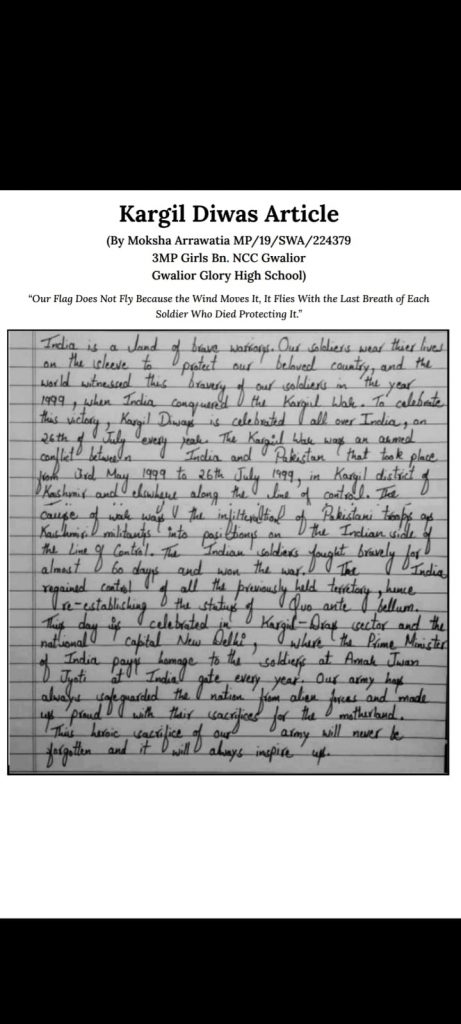 Kargil Diwas Article
(By Moksha Arrawatia MP/19/SWA/224379
3MP Girls Bn. NCC Gwalior
Gwalior Glory High School)
“Our Flag Does Not Fly Because the Wind Moves It, It Flies With the Last Breath of Each
Soldier Who Died Protecting It.”
India is a land of brave warriors. Our soldiers wear thier lives
on the sleeve to protect our beloved country, and the
world witnessed this bravery of our soldiers in the year
1999, when India conquered the Kargil War. To celebrate
this victory, Kargil Diwas is celebrated all over India, on
26th of July every year. The Kargil War was an armed
conflict between India and Pakistan that took place
from 3rd May 1999 to 26th July 1999, in Kargil district of
Kashmir and elsewhere along the line of control. The
cause of war was the infilteration of Pakistani troops as
Kashmiri militants into positions on the Indian side of
the Line of Control. The Indian soldiers fought bravely for
almost 60 days and won the war. The India
regained control of all the previously held territory, hence
re-establishing the status of Quo ante bellum.
This day is celebrated in Kargil-Dras sector and the
national capital New Delhi, where the Prime Minister
of India pays homage to the soldiers at Amar Jwan
Jyoti at India gate every year. Our army has
always safeguarded the nation from alien forces and made
us proud with their sacrifices for the motherland.
This heroic sacrifice of our army will never be
forgotten and it will always inspire us.